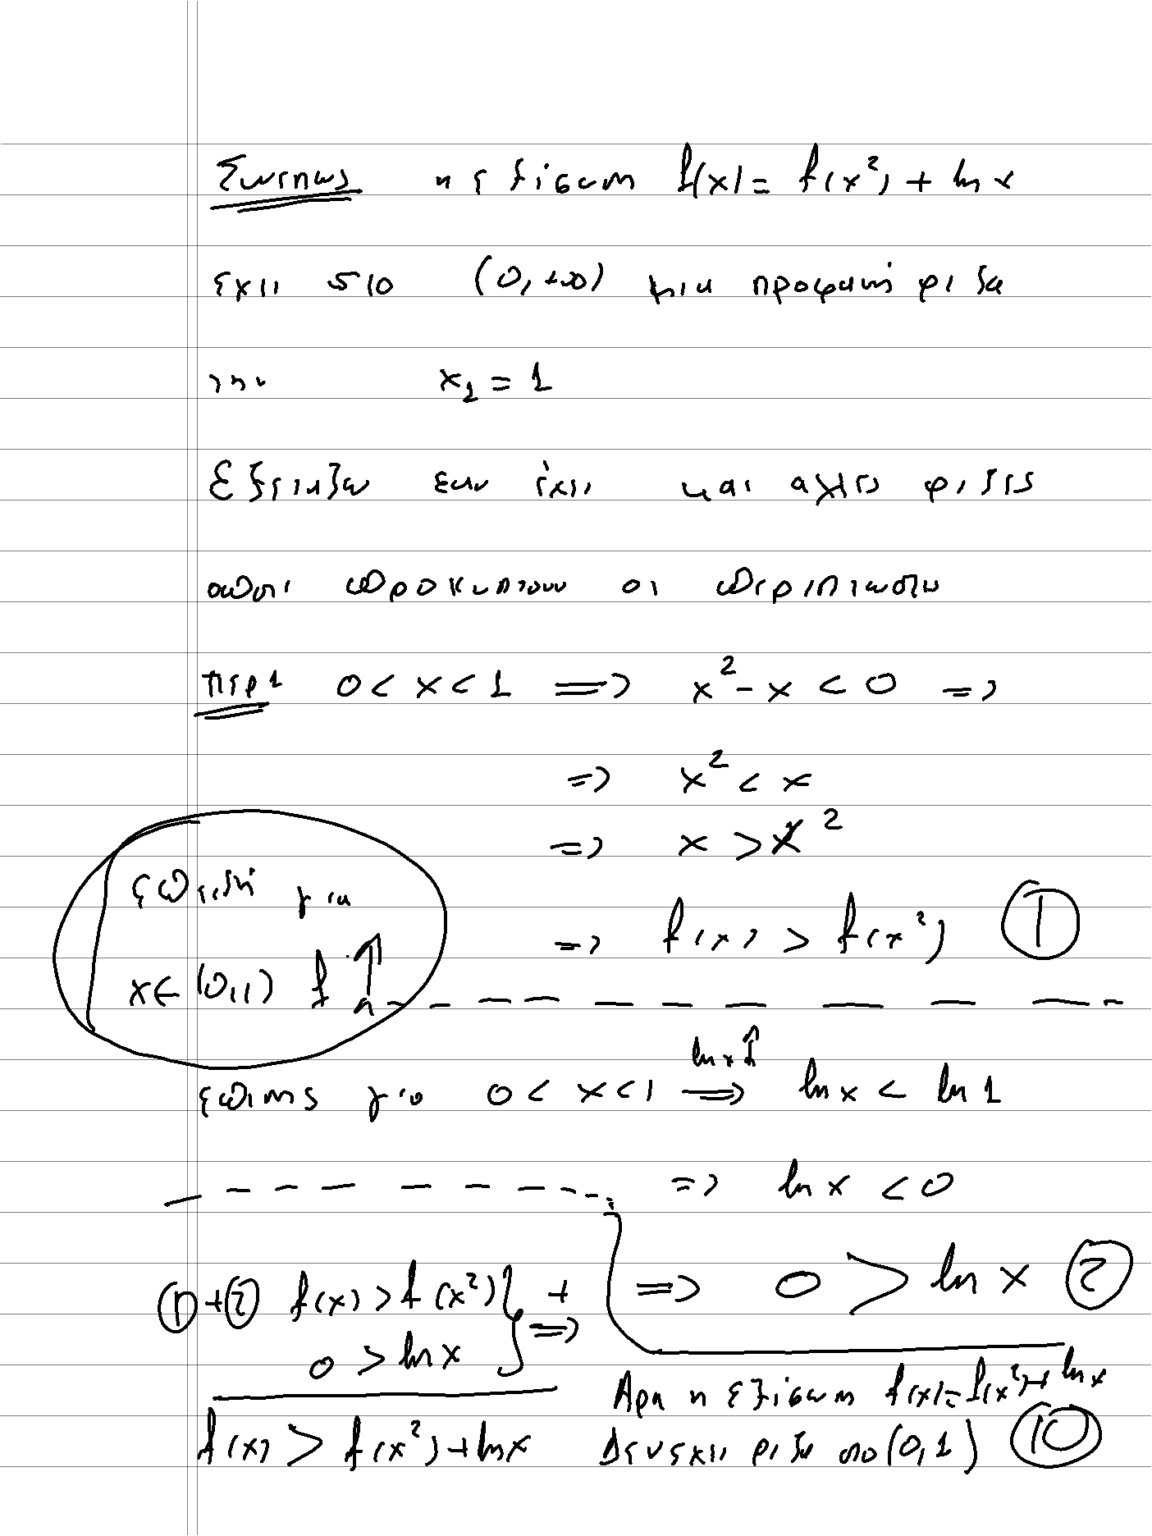 Συνεπως η εξίσωση f(x) = f(x²) + ln x
εχει στο (0, +∞) μια προφανή ριζα
την x₁ = 1
Εξεταζω εαν έχει και αλλες ριζες
οποτε προκυπτουν οι περιπτωσεις
περ 1 0 < x < 1 => x² - x < 0 =>
=> x² < x
=> x > x²
επειδή για
x ∈ (0,1) f ↑
=> f(x) > f(x²) ①
επισης για 0 < x < 1 ln x ↑ => ln x < ln 1
=> ln x < 0
=> 0 > ln x ②
① + ② f(x) > f(x²) } + =>
0 > ln x
f(x) > f(x²) + ln x
Αρα η εξίσωση f(x) = f(x²) + ln x
Δεν εχει ριζα στο (0, 1) ⑩